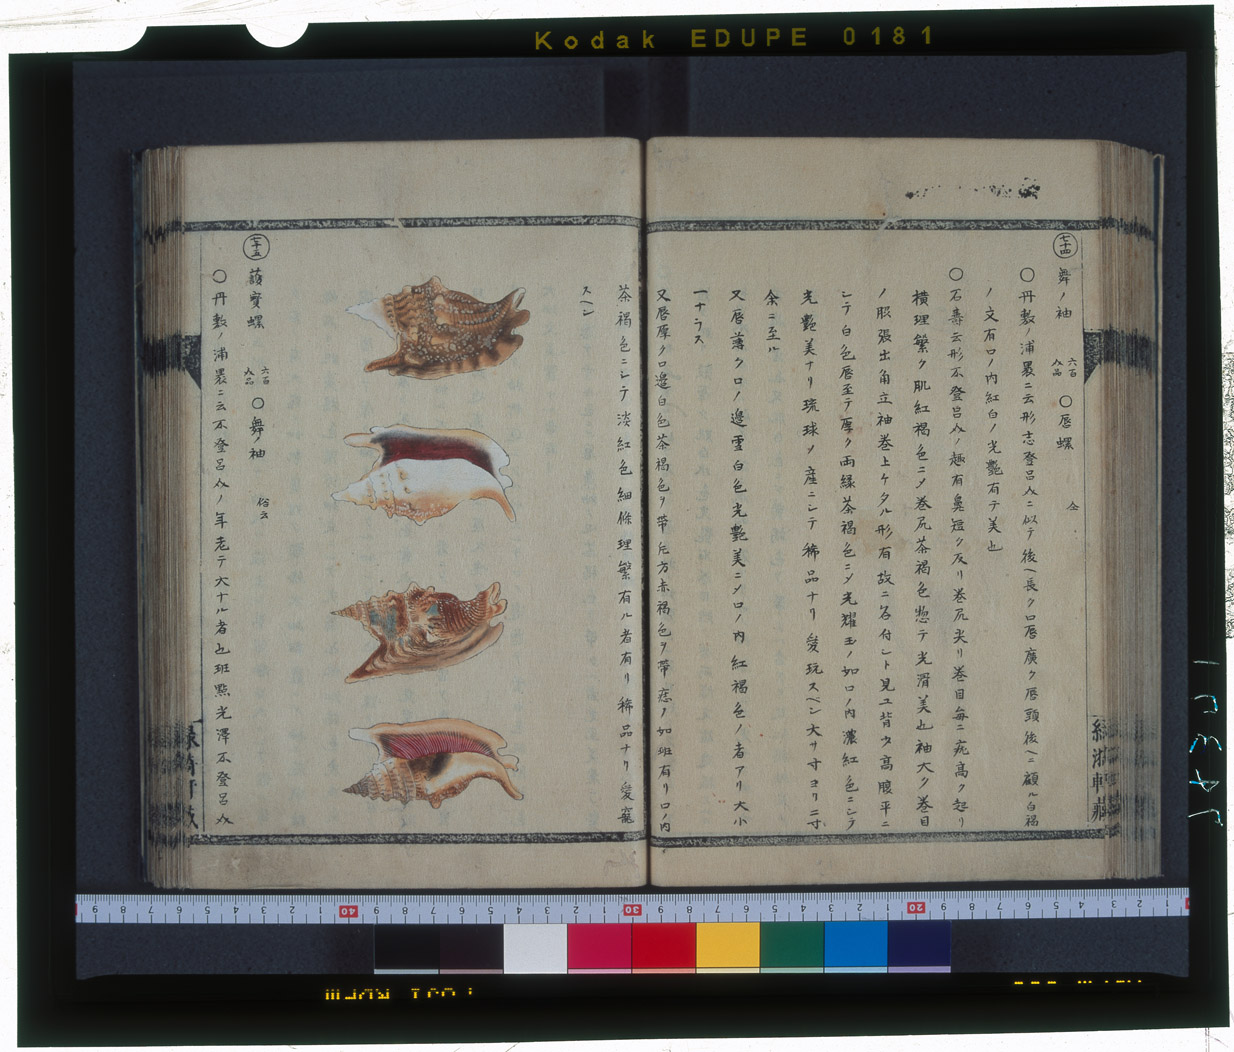 Kodak EDUPE 0181
七十四
舞ノ袖 六百介品 〇唇螺 仝
〇丹敷ノ浦裏ニ云形志登呂介ニ似テ後ヘ長ク口唇廣ク唇頭後ヘニ顧ル白褐
ノ文有口ノ内紅白ノ光艷有テ美也
〇石壽云形不登呂介ノ趣有鼻短ク反リ巻尻尖リ巻目每ニ疣高ク起リ
橫理繁ク肌紅褐色ニメ巻尻茶褐色惣テ光滑美也袖大ク巻目
ノ服張出角立袖巻上ケタル形有故ニ名付シト見ユ背タ高腹平ニ
シテ白色唇至テ厚ク両緣茶褐色ニメ光耀玉ノ如口ノ内濃紅色ニシテ
光艷美ナリ琉球ノ産ニシテ稀品ナリ愛玩スベシ大サ寸ヨリ二寸
余ニ至ル
又唇薄ク口ノ邊雪白色光艷美ニメ口ノ内紅褐色ノ者アリ大小
一ナラス
又唇厚ク口邊白色茶褐色ヲ帶左方赤褐色ヲ帶如班有リ口ノ内
茶褐色ニシテ淡紅色細條理繁有ル者有リ稀品ナリ愛寵
スベシ
七十五
蔆寳螺 六百介品 〇舞ノ袖 俗云
〇丹敷ノ浦裏ニ云不登呂介ノ年老テ大ナル者也班點光澤不登呂介